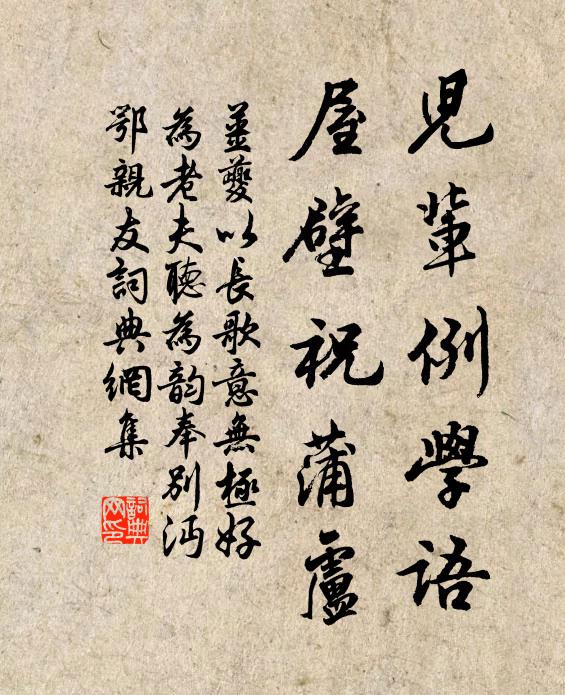 兒輩例學語
屋壁祝蒲盧
姜夔以長歌意無極好
為老夫聽為韵奉别沔
鄂親友詞典網集
詞典网印